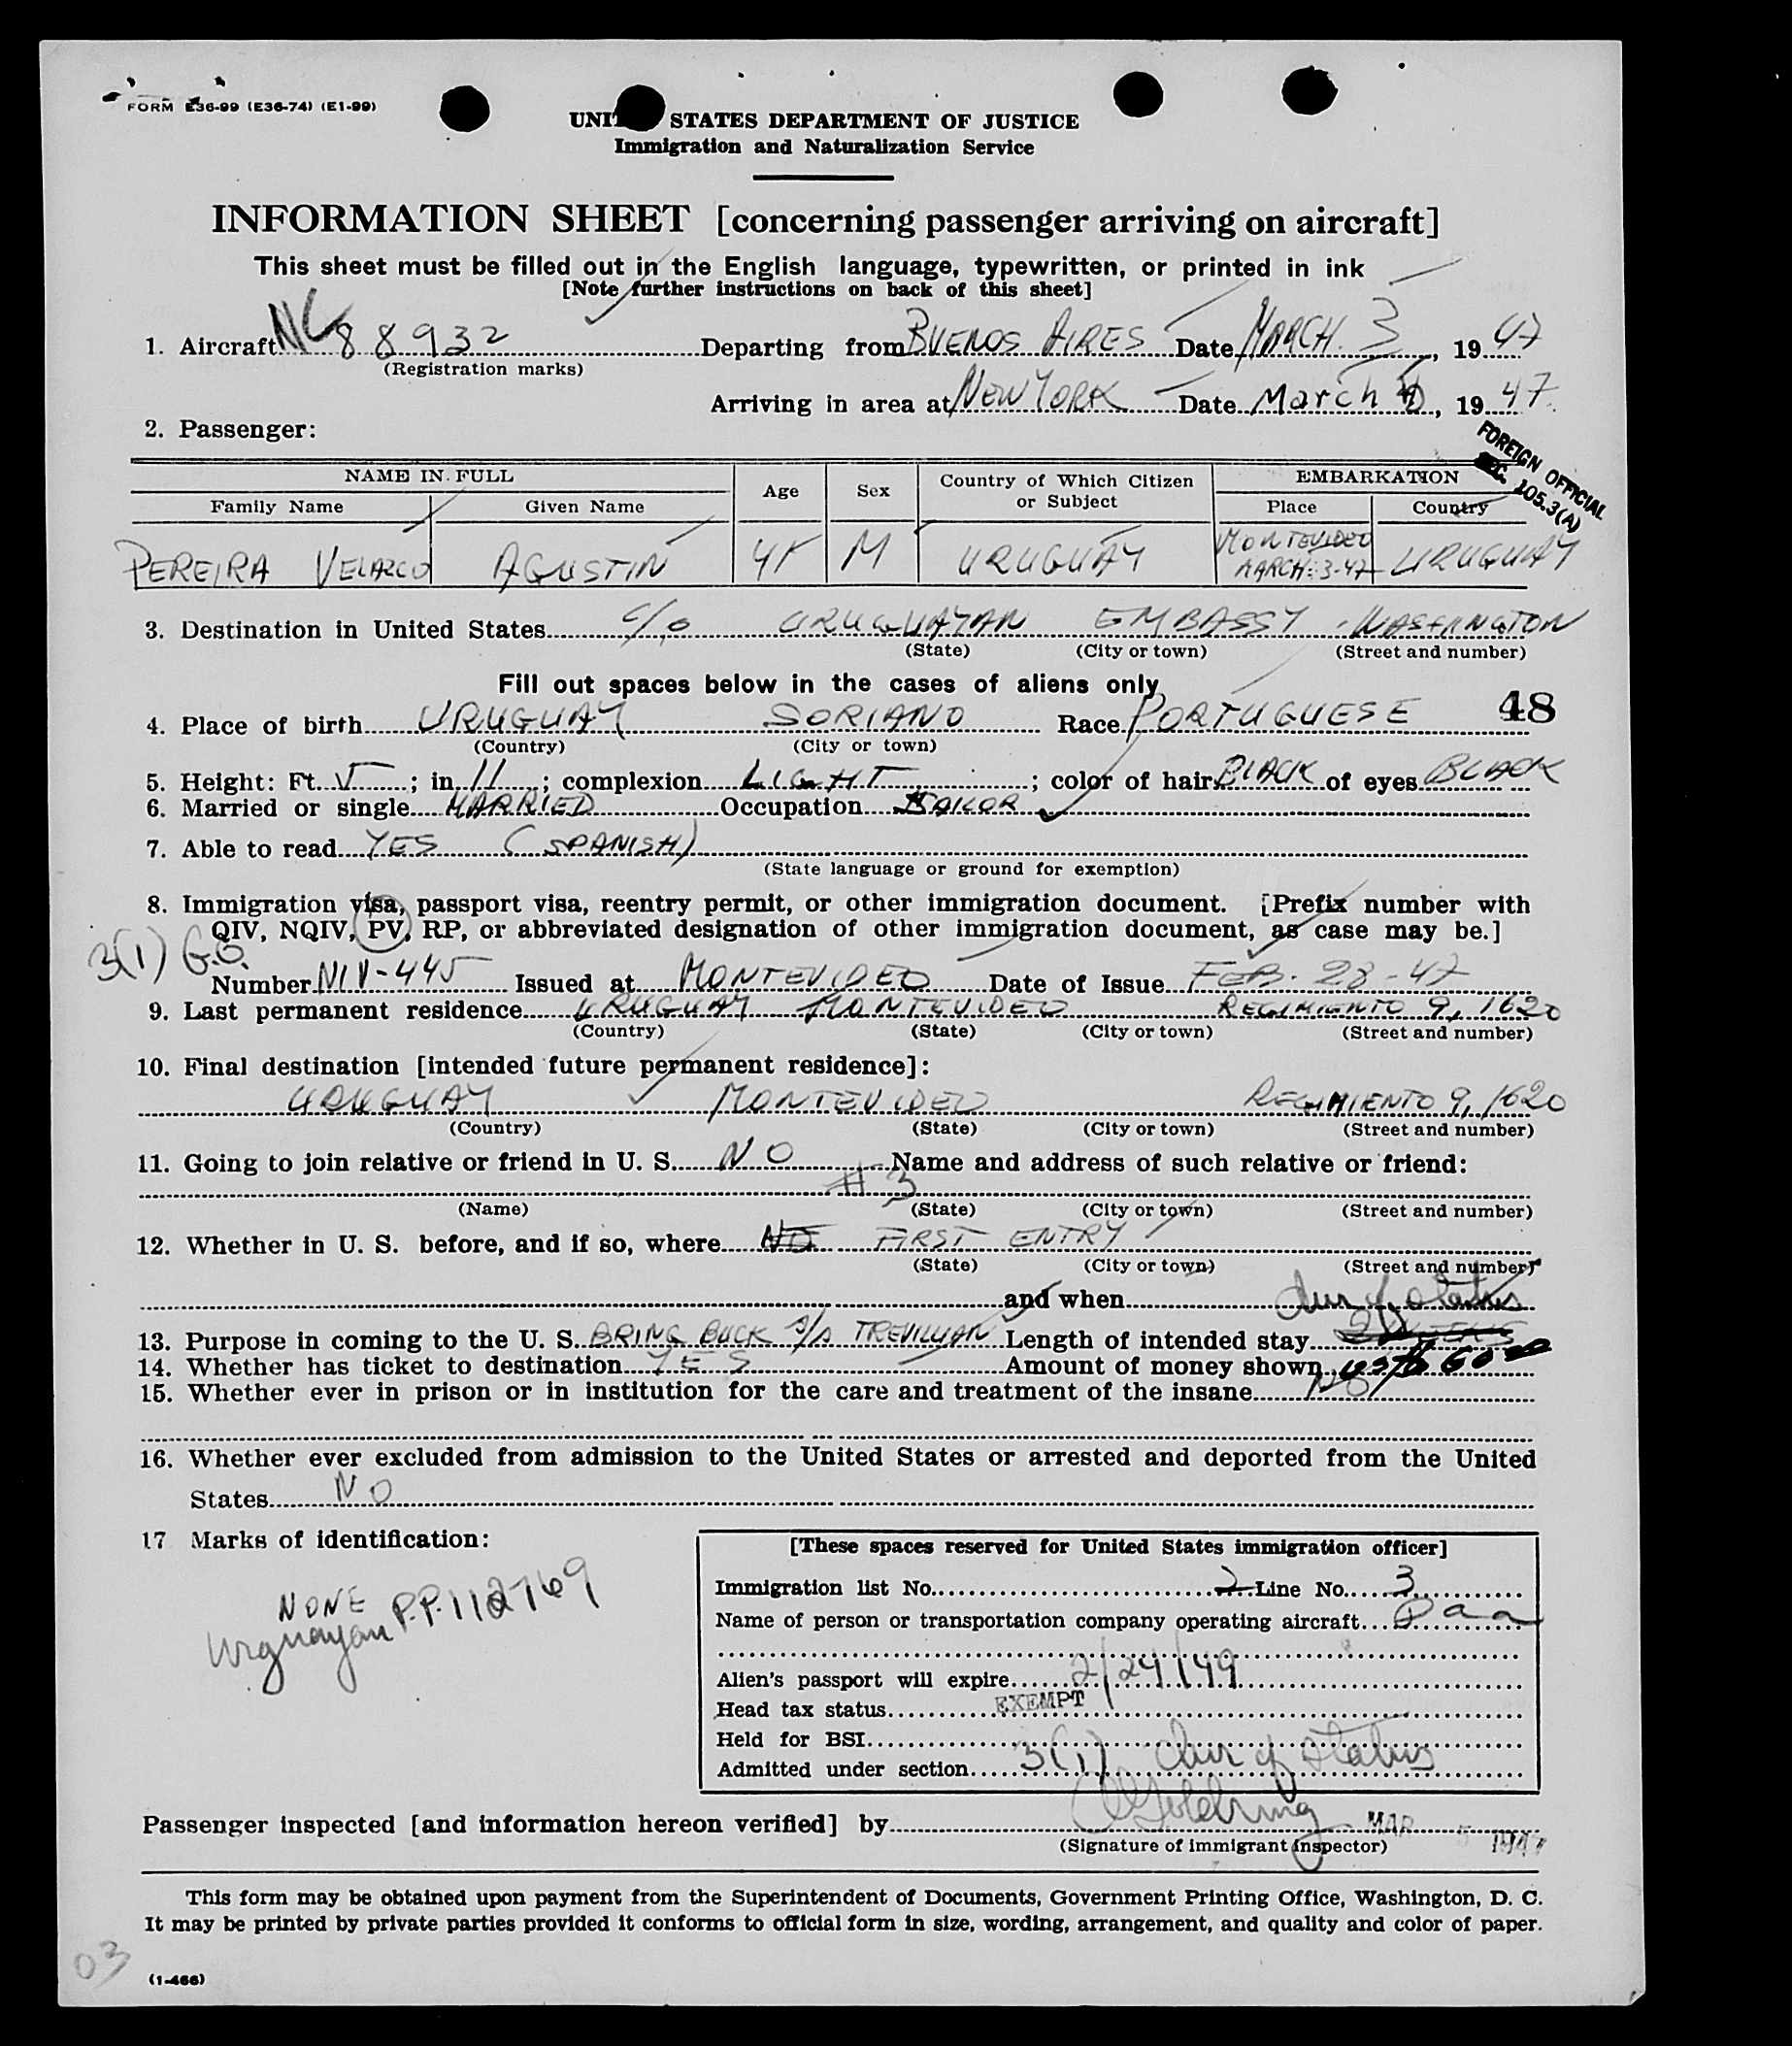 FORM E36-99 (E36-74) (E1-99)
UNITED STATES DEPARTMENT OF JUSTICE
Immigration and Naturalization Service
INFORMATION SHEET [concerning passenger arriving on aircraft]
This sheet must be filled out in the English language, typewritten, or printed in ink
[Note further instructions on back of this sheet]
1. Aircraft NC 88932 Departing from BUENOS AIRES Date MARCH. 3, 1947
(Registration marks)
Arriving in area at NEW YORK Date March, 1947
2. Passenger:
FOREIGN OFFICIAL
SEC. 105.3(A)
NAME IN FULL Age Sex Country of Which Citizen or Subject EMBARKATION
Family Name Given Name Place Country
PEREIRA VELAZCO AGUSTIN M URUGUAY MONTEVIDEO MARCH-3-47 URUGUAY
3. Destination in United States c/o URUGUAYAN EMBASSY - WASHINGTON
(State) (City or town) (Street and number)
Fill out spaces below in the cases of aliens only
48
4. Place of birth URUGUAY SORIANO Race PORTUGUESE
(Country) (City or town)
5. Height: Ft. 5; in. 11; complexion LIGHT; color of hair BLACK of eyes BLACK
6. Married or single MARRIED Occupation SAILOR
7. Able to read YES (SPANISH)
(State language or ground for exemption)
8. Immigration visa, passport visa, reentry permit, or other immigration document. [Prefix number with
QIV, NQIV, PV, RP, or abbreviated designation of other immigration document, as case may be.]
3(1) G.O.
Number NIV-445 Issued at MONTEVIDEO Date of Issue FEB. 28-47
9. Last permanent residence URUGUAY MONTEVIDEO REGIMIENTO 9, 1620
(Country) (State) (City or town) (Street and number)
10. Final destination [intended future permanent residence]:
URUGUAY MONTEVIDEO REGIMIENTO 9, 1620
(Country) (State) (City or town) (Street and number)
11. Going to join relative or friend in U. S. NO Name and address of such relative or friend:
# 3
(Name) (State) (City or town) (Street and number)
12. Whether in U. S. before, and if so, where NO FIRST ENTRY
(State) (City or town) (Street and number)
and when dur of status
13. Purpose in coming to the U. S. BRING BUCK S/S TREVILLIAN Length of intended stay
14. Whether has ticket to destination YES Amount of money shown
15. Whether ever in prison or in institution for the care and treatment of the insane NO
16. Whether ever excluded from admission to the United States or arrested and deported from the United
States NO
17 Marks of identification:
NONE
Uruguayan P.P. 112769
[These spaces reserved for United States immigration officer]
Immigration list No. 2 Line No. 3
Name of person or transportation company operating aircraft Paa
Alien's passport will expire 2/24/49
Head tax status EXEMPT
Held for BSI
Admitted under section 3(1) dur of status
Passenger inspected [and information hereon verified] by Goldring MAR 5 1947
(Signature of immigrant inspector)
This form may be obtained upon payment from the Superintendent of Documents, Government Printing Office, Washington, D. C.
It may be printed by private parties provided it conforms to official form in size, wording, arrangement, and quality and color of paper.
03
(1-466)